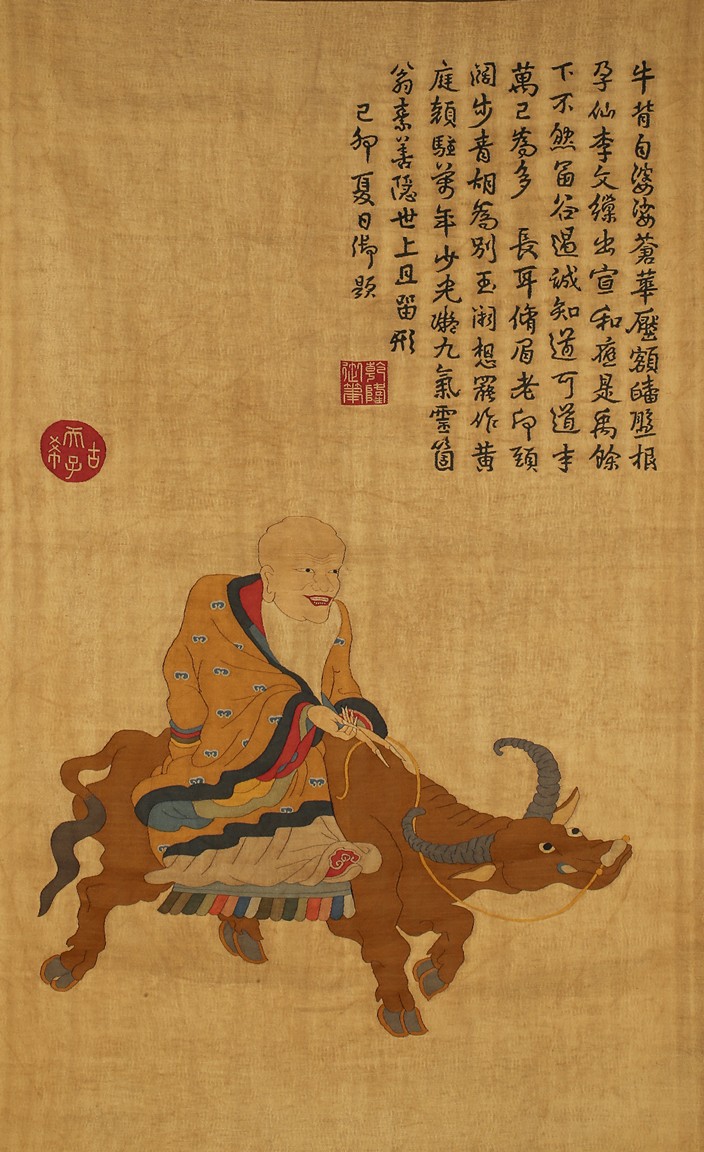 牛背白婆娑蒼華壓額皤盤根
孕仙李文出宣和應是禹餘
下不然函谷過誠知道可道半
萬已為多 長耳脩眉老頭
闊步青胡為別玉關想罷作黃
庭頟駐萬年少光凝九氣雲箇
翁素善隱世上且留形
己卯夏日御題
乾隆御筆
古希天子